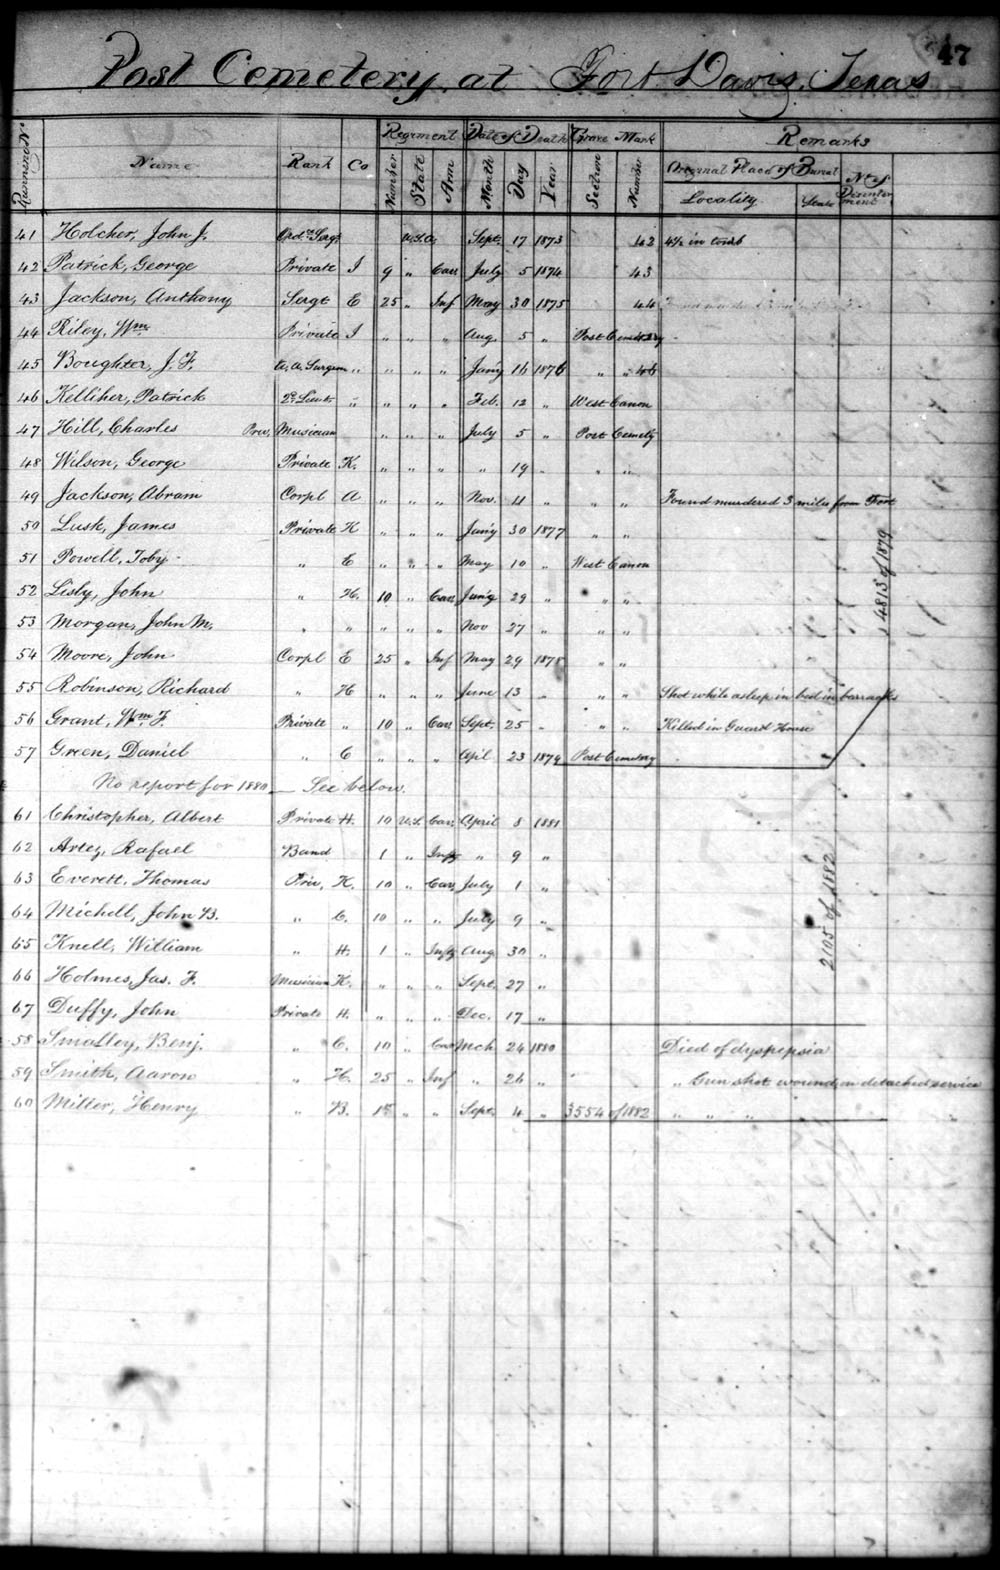 47
Post Cemetery at Fort Davis, Texas
Running No. Name Rank Co Regiment Date of Death Grave Mark Remarks
Number State Arm Month Day Year Section Number Original Place of Burial No of Disinterment
Locality State
41 Holcher, John J. Ord. Sergt U.S.A. Sept. 17 1873 42 4½ in tomb
42 Patrick, George Private I 9 " Cav July 5 1874 43
43 Jackson, Anthony Sergt E 25 " Inf May 30 1875 44
44 Riley, Wm. Private I " " " Aug. 5 " Post Cemetery
45 Boughter, J. F. A. A. Surgeon " " " " Jan'y 16 1876 " " 46
46 Kelliher, Patrick 2d Lieut " " " " Feb. 12 " West Canon
47 Hill, Charles Prin. Musician " " " July 5 " Post Cemet'y
48 Wilson, George Private K. " " " " 19 " " "
49 Jackson, Abram Corpl A " " " Nov. 11 " " " Found murdered 3 miles from Fort
50 Lusk, James Private H " " " Jan'y 30 1877 " "
51 Powell, Toby " E " " " May 10 " West Canon
52 Lisly, John " H. 10 " Cav. Jan'y 29 " " "
53 Morgan, John M. " " " " " Nov 27 " " "
54 Moore, John Corpl E 25 " Inf May 29 1878 " "
55 Robinson, Richard " H " " " June 13 " " " Shot while asleep in bed in barracks
56 Grant, Wm. F. Private " 10 " Cav. Sept. 25 " " " Killed in Guard House
57 Green, Daniel " C " " " Apil 23 1879 Post Cemetery
4815 of 1879
No report for 1880 — See below.
61 Christopher, Albert Private H. 10 U.S. Cav. April 8 1881
62 Artez, Rafael Band 1 " Infy " 9 "
63 Everett, Thomas Priv. K. 10 " Cav. July 1 "
64 Michell, John B. " C. 10 " " July 9 "
65 Knell, William " H. 1 " Infy Aug 30 "
66 Holmes, Jas. F. Musician K. " " " Sept. 27 "
67 Duffy, John Private H. " " " Dec. 17 "
2105 of 1882
58 Smalley, Benj. " C. 10 " Cav Mch 24 1880 Died of dyspepsia
59 Smith, Aaron " H. 25 " Inf " 26 " " Gun shot wound, on detached service
60 Miller, Henry " B. 1st " " Sept. 4 " 3554 of 1882 " " " "